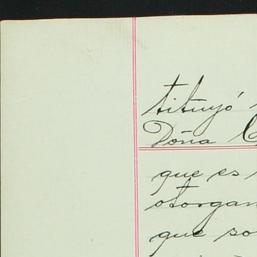 tituyó
Doña
que es
otorgan
que so